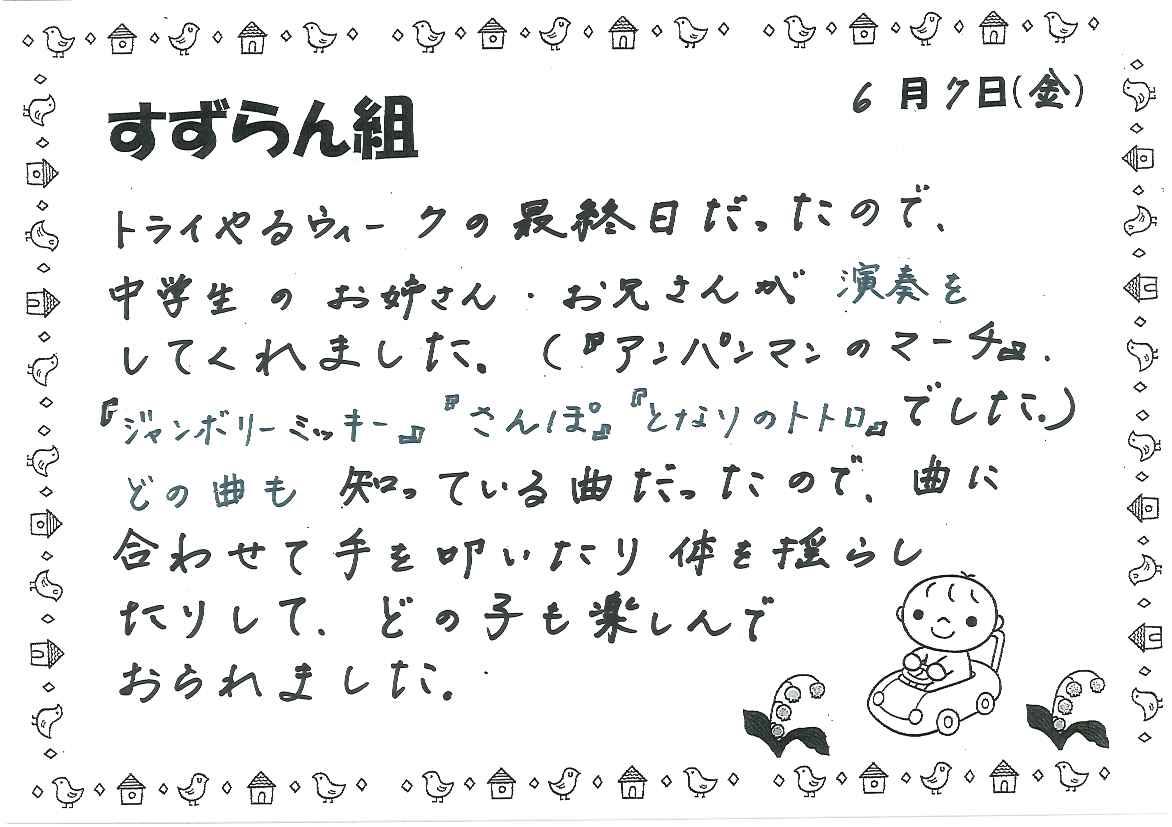 6月7日(金)
すずらん組
トライやるウィークの最終日だったので、
中学生のお姉さん・お兄さんが演奏を
してくれました。(『アンパンマンのマーチ』、
『ジャンボリーミッキー』『さんぽ』『となりのトトロ』でした。)
どの曲も知っている曲だったので、曲に
合わせて手を叩いたり体を揺らし
たりして、どの子も楽しんで
おられました。